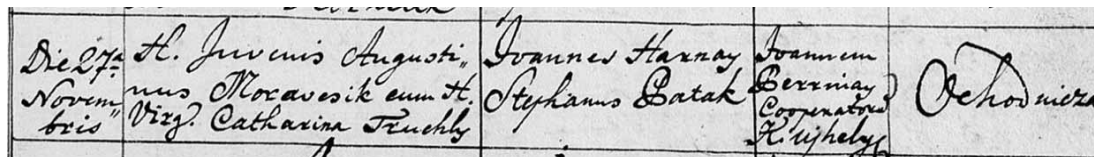 Die 27ª
Novem„
bris
H. Juvenis Augusti„
nus Moravcsik cum H.
Virg. Catharina Truchly
Joannes Harnay
Stephanus Batak
Joannem
Berrniay
Cooperatore
K. ujhely
Ochodnicza